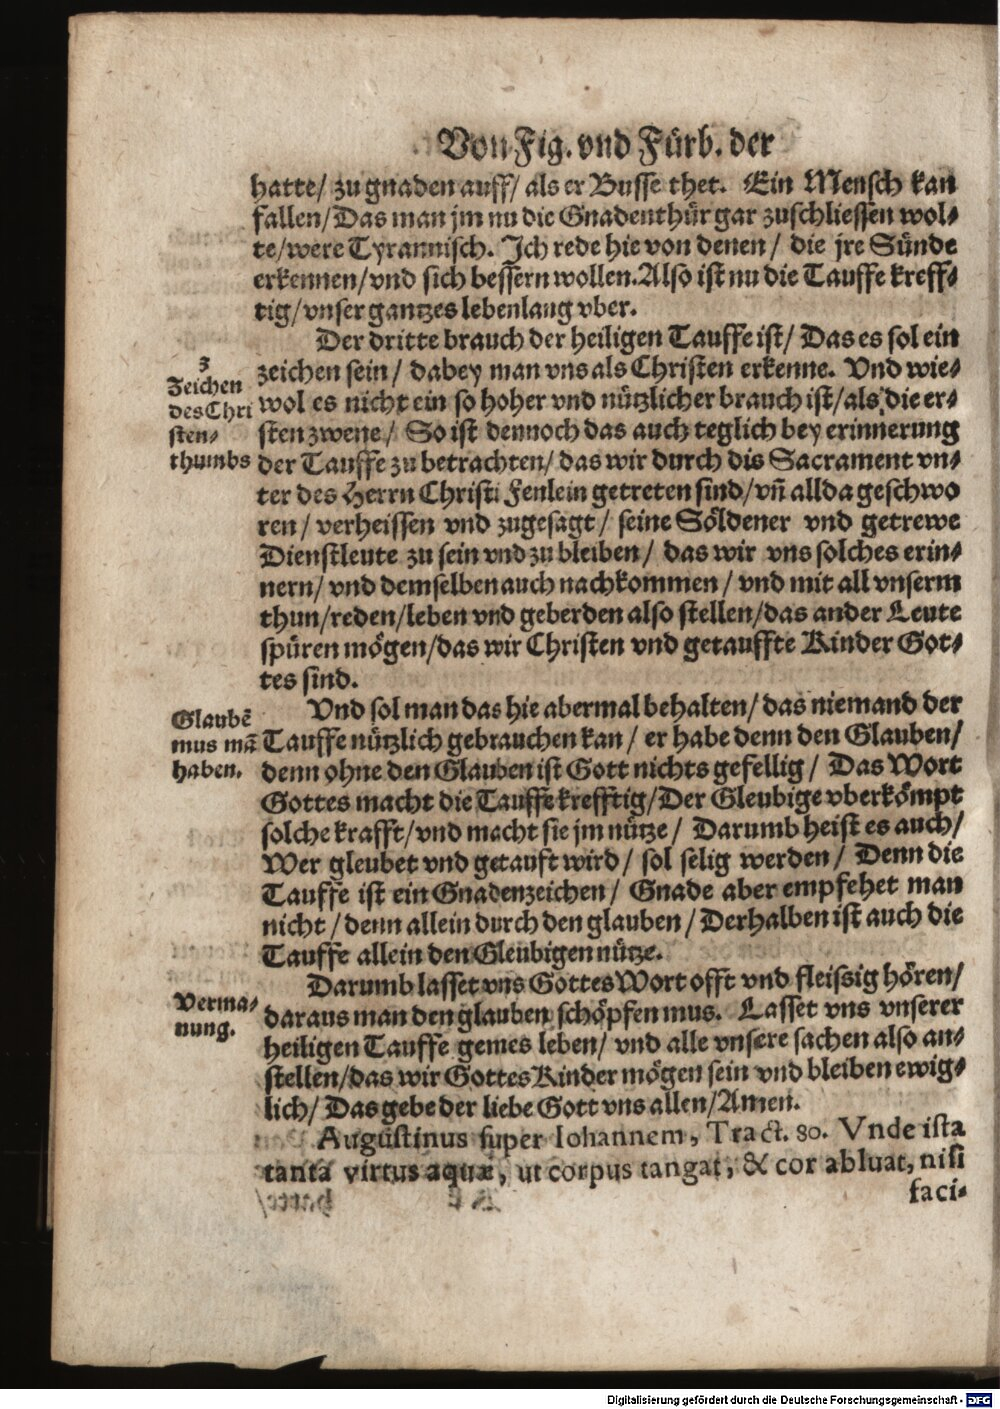 Von Fig. vnd Fürb. der
hatte/ zu gnaden auff/ als er Busse thet. Ein Mensch kan
fallen/ Das man jm nu die Gnadenthür gar zuschliessen wol-
te/ were Tyrannisch. Ich rede hie von denen/ die jre Sünde
erkennen/ vnd sich bessern wollen. Also ist nu die Tauffe kreff-
tig/ vnser gantzes lebenlang vber.
Der dritte brauch der heiligen Tauffe ist/ Das es sol ein
zeichen sein/ dabey man vns als Christen erkenne. Vnd wie-
wol es nicht ein so hoher vnd nützlicher brauch ist/ als die er-
sten zwene/ So ist dennoch das auch teglich bey erinnerung
der Tauffe zu betrachten/ das wir durch dis Sacrament vn-
ter des Herrn Christi Fenlein getreten sind/ vñ allda geschwo
ren/ verheissen vnd zugesagt/ seine Söldener vnd getrewe
Dienstleute zu sein vnd zu bleiben/ das wir vns solches erin-
nern/ vnd demselben auch nachkommen/ vnd mit all vnserm
thun/ reden/ leben vnd geberden also stellen/ das ander Leute
spüren mögen/ das wir Christen vnd getauffte Kinder Got-
tes sind.
3
Zeichen
des Chri
sten-
thumbs
Vnd sol man das hie abermal behalten/ das niemand der
Tauffe nützlich gebrauchen kan/ er habe denn den Glauben/
denn ohne den Glauben ist Gott nichts gefellig/ Das Wort
Gottes macht die Tauffe krefftig/ Der Gleubige vberkömpt
solche krafft/ vnd macht sie jm nütze/ Darumb heist es auch/
Wer gleubet vnd getauft wird/ sol selig werden/ Denn die
Tauffe ist ein Gnadenzeichen/ Gnade aber empfehet man
nicht/ denn allein durch den glauben/ Derhalben ist auch die
Tauffe allein den Gleubigen nütze.
Glaubē
mus mā
haben.
Darumb lasset vns Gottes Wort offt vnd fleissig hören/
daraus man den glauben schöpfen mus. Lasset vns vnserer
heiligen Tauffe gemes leben/ vnd alle vnsere sachen also an-
stellen/ das wir Gottes Kinder mögen sein vnd bleiben ewig-
lich/ Das gebe der liebe Gott vns allen/ Amen.
Verma-
nung.
Augustinus super Iohannem, Tract. 80. Vnde ista
tanta virtus aquæ, ut corpus tangat, & cor abluat, nisi
faci-
Digitalisierung gefördert durch die Deutsche Forschungsgemeinschaft - DFG